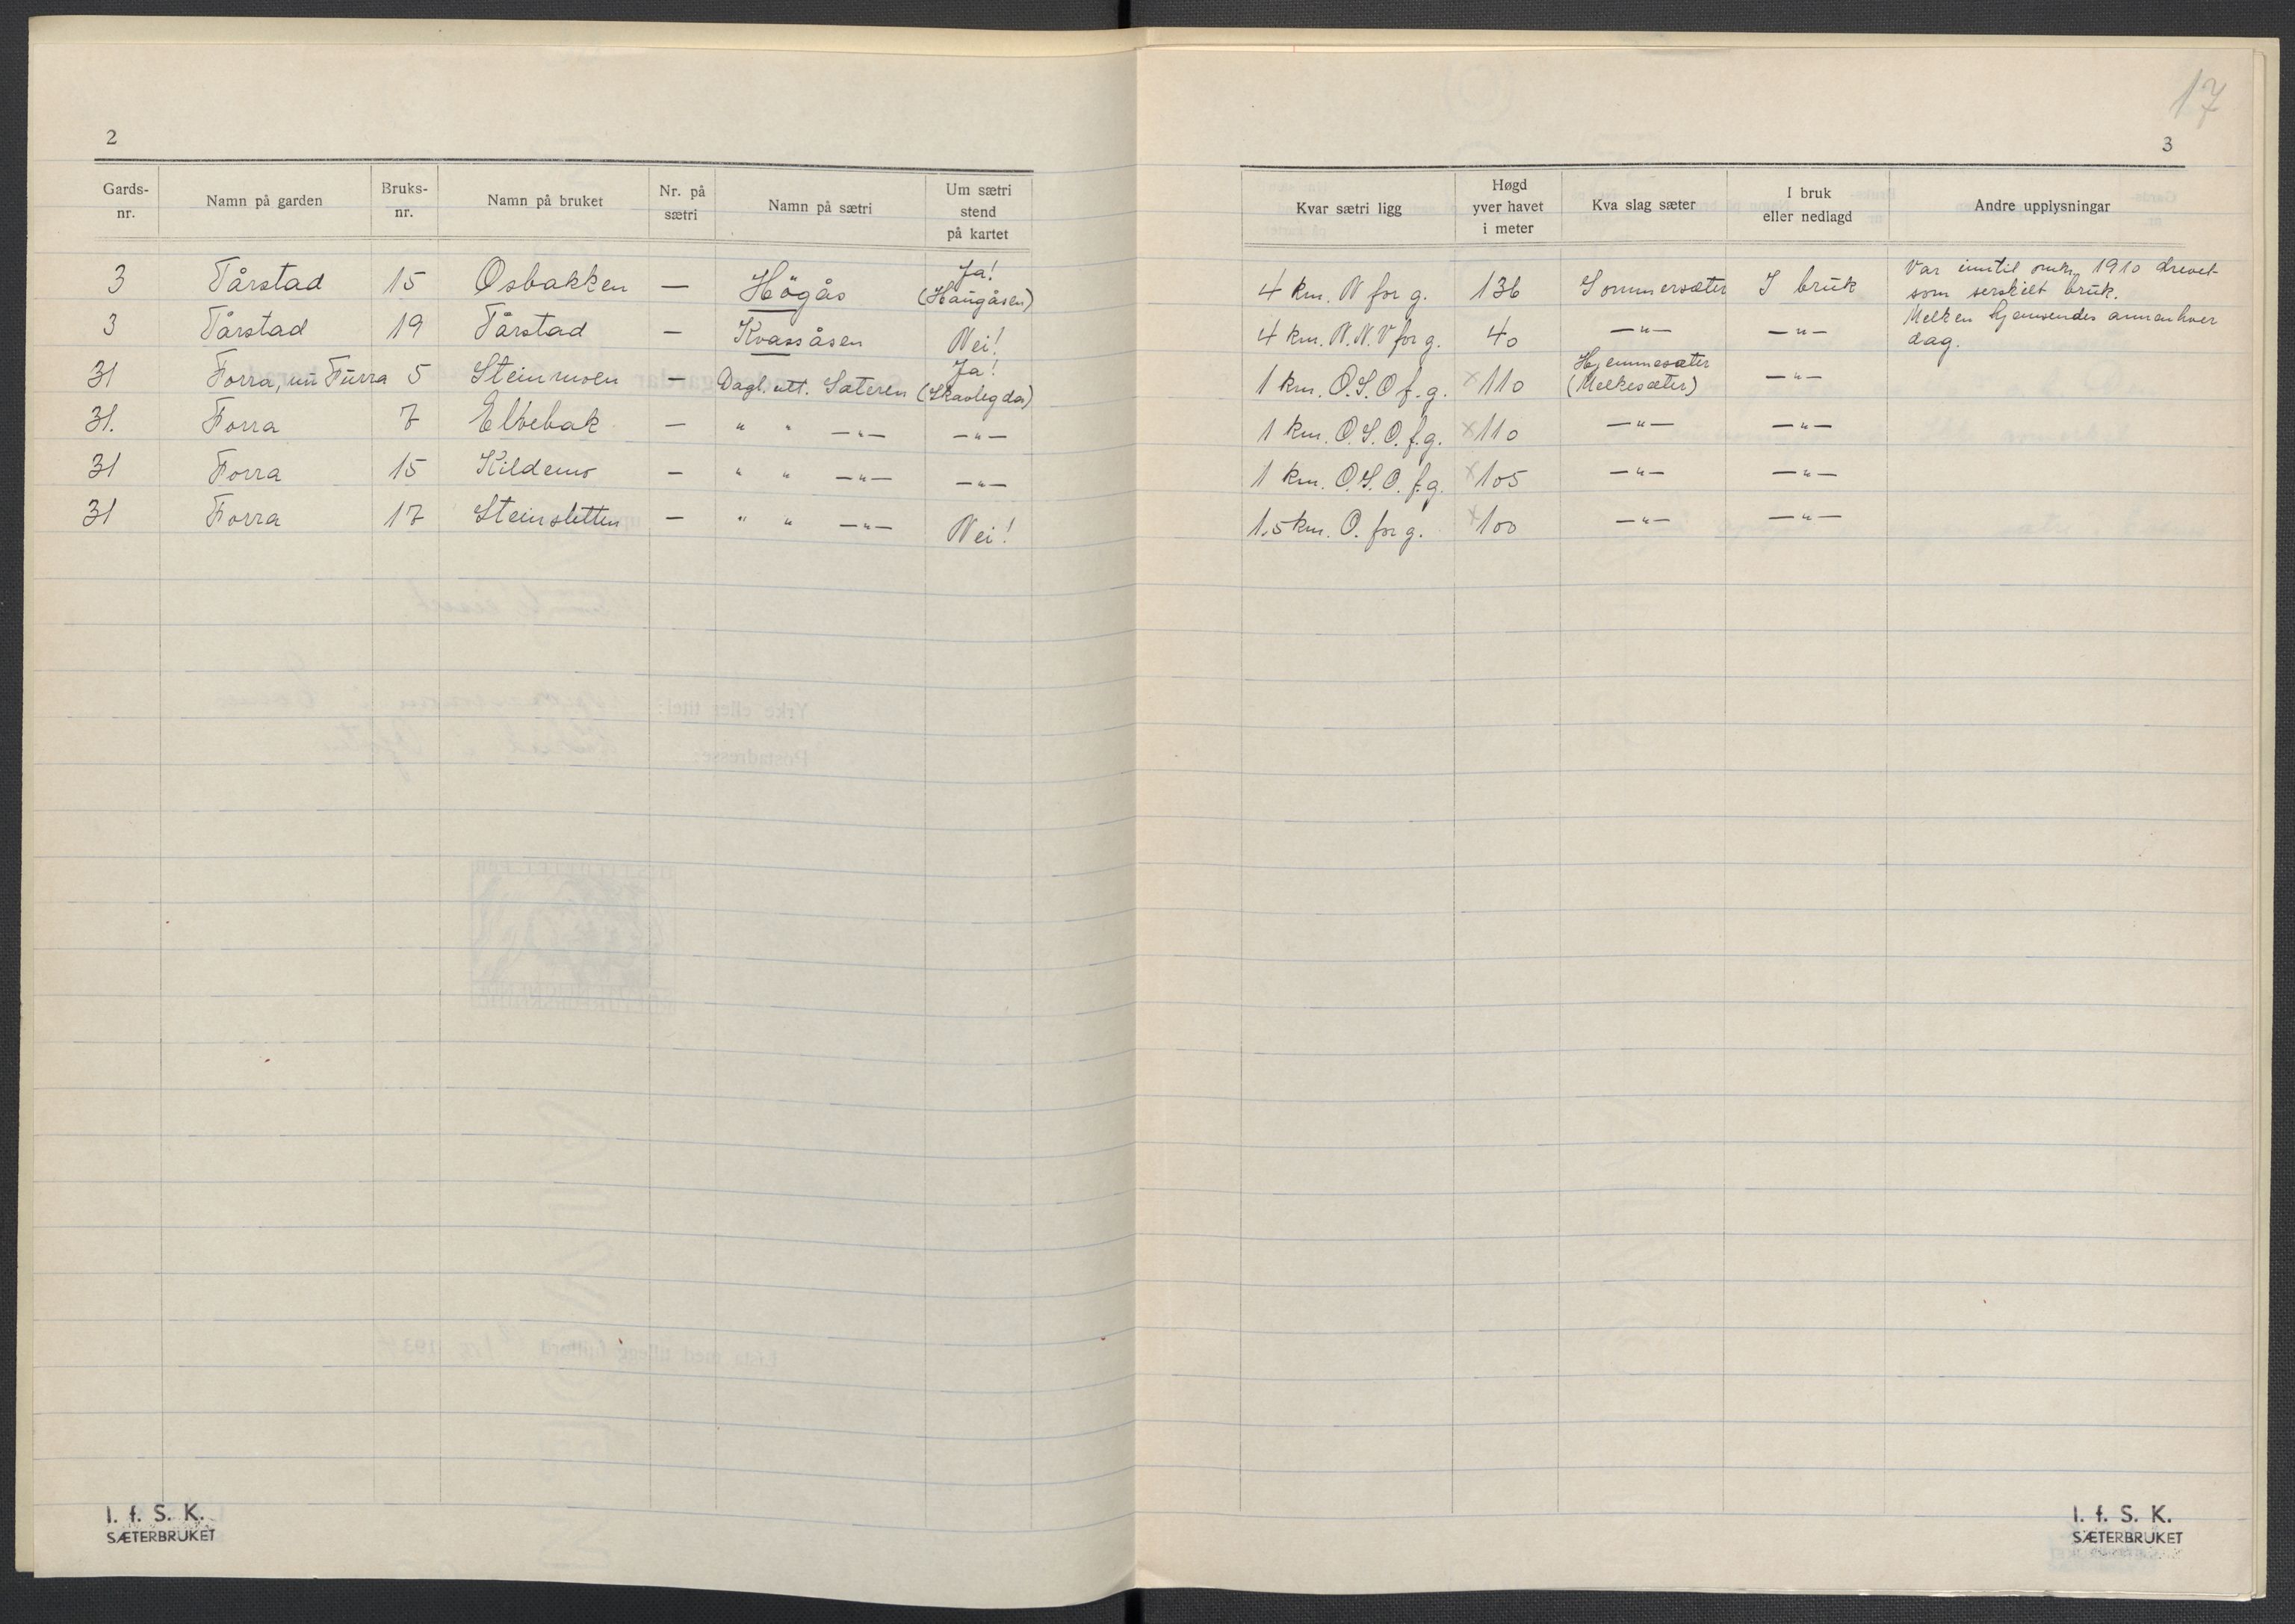 17
2
Gards-nr. Namn på garden Bruks-nr. Namn på bruket Nr. på sætri Namn på sætri Um sætri stend på kartet
3 Tårstad 15 Osbakken — Högås Ja! (Haugåsen)
3 Tårstad 19 Tårstad — Kvassåsen Nei!
31 Forra, nu Furra 5 Steinmoen — Dagl. utt. Sæteren Ja! (Skavlegda)
31. Forra 7 Elvebak — " " —"— —"—
31 Forra 15 Kildemo — " " —"— —"—
31 Forra 17 Steinsletten — " " —"— Nei!
I. f. S. K.
SÆTERBRUKET
3
Kvar sætri ligg Høgd yver havet i meter Kva slag sæter I bruk eller nedlagd Andre upplysningar
4 km. N for g. 136 Sommersæter I bruk Var inntil omkr. 1910 drevet
som serskilt bruk.
4 km. N.N.V for g. 40 —"— —"— Melken hjemsendes annenhver
dag.
1 km. O.S.O f. g. x110 Hjemmesæter (Melkesæter) —"—
1 km. O.S.O. f.g. x110 —"— —"—
1 km. O.S.O. f.g. x105 —"— —"—
1.5 km. O. for g. x100 —"— —"—
I. f. S. K.
SÆTERBRUKET